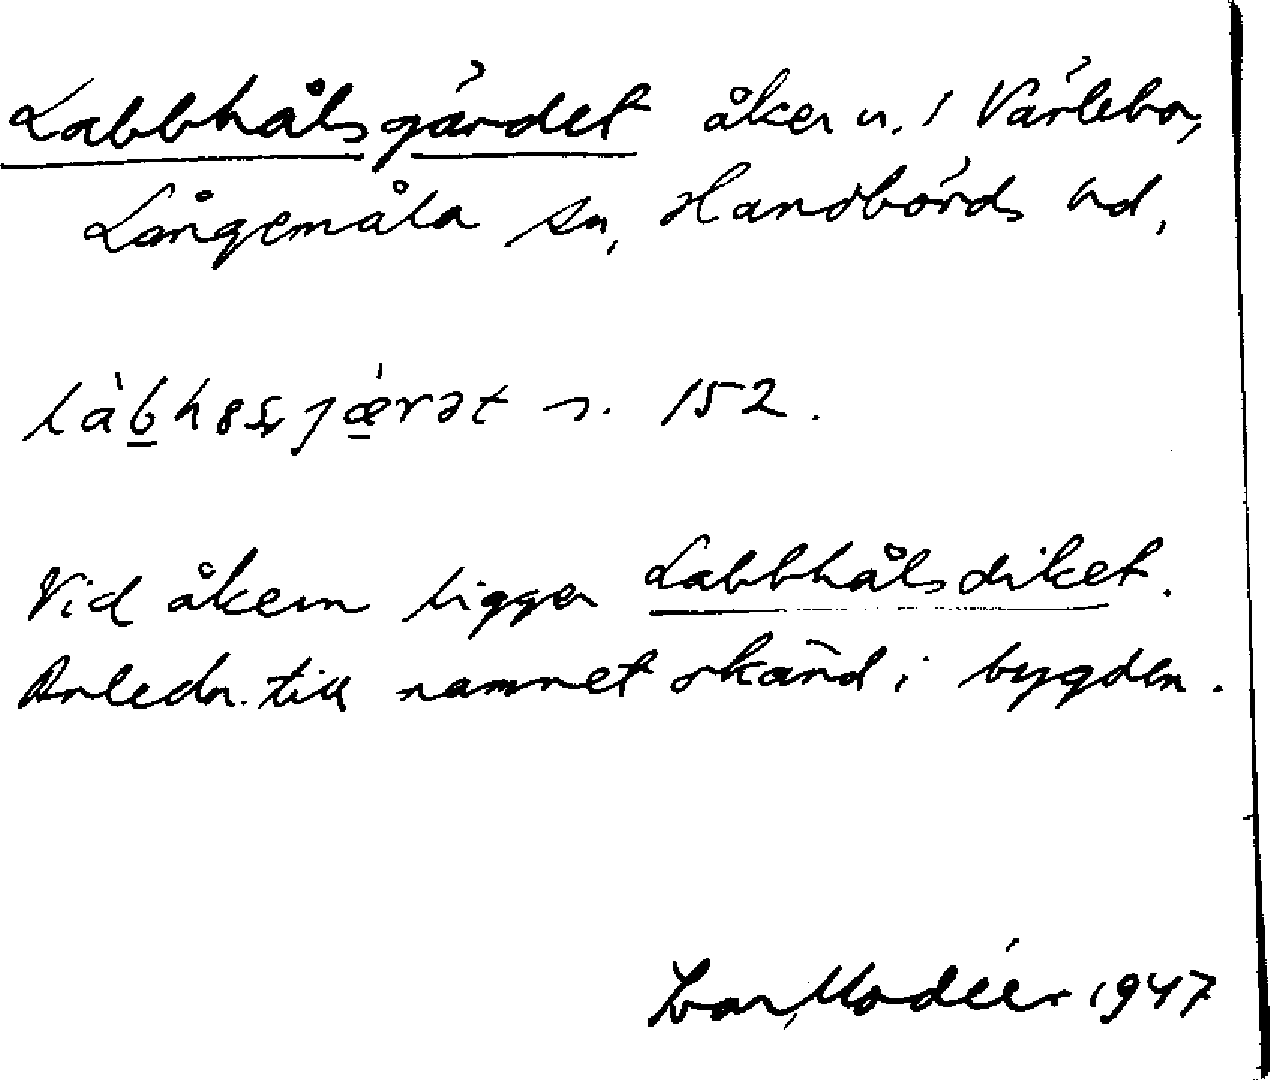 Labbhålsgärdet åker n. i Värlebo,
Långemåla sn, Handbörds hd,
n. 152.
Vid åkern ligger Labbhålsdiket.
Anledn. till namnet okänd i bygden.
Ivar Modéer 1947